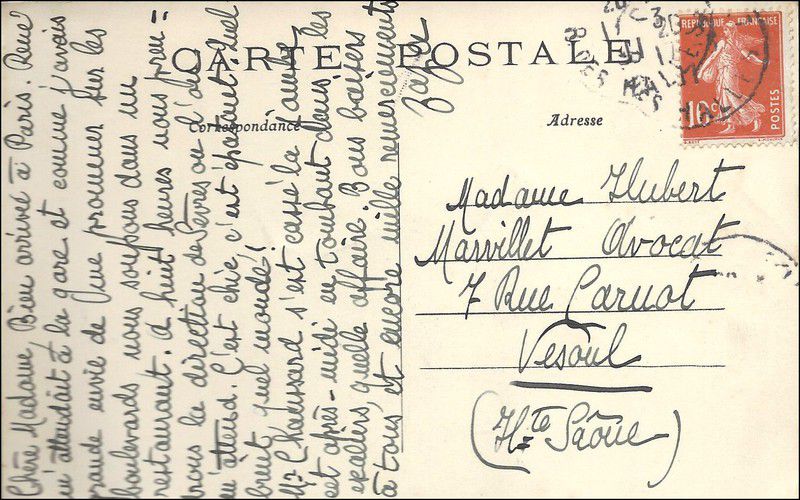 CARTE POSTALE
Correspondance
Adresse
REPUBLIQUE FRANCAISE
10c
POSTES
Madame Hubert
Marvillet Avocat
7 Rue Carnot
Vesoul
(Hte Saône)
Chère Madame Bien arrivé à Paris, René
m'attendait à la gare et comme j'avais
grande envie de me promener sur les
boulevards nous soupons dans un
restaurant. A huit heures nous pren-
drons la direction de Sèvres où l'on
m'attend. C'est chic c'est épatant quel
bruit quel monde!
Mr Chaussard s'est cassé la jambe
cet après-midi en tombant dans les
escaliers, quelle affaire. Bons baisers
à tous et encore mille remerciements